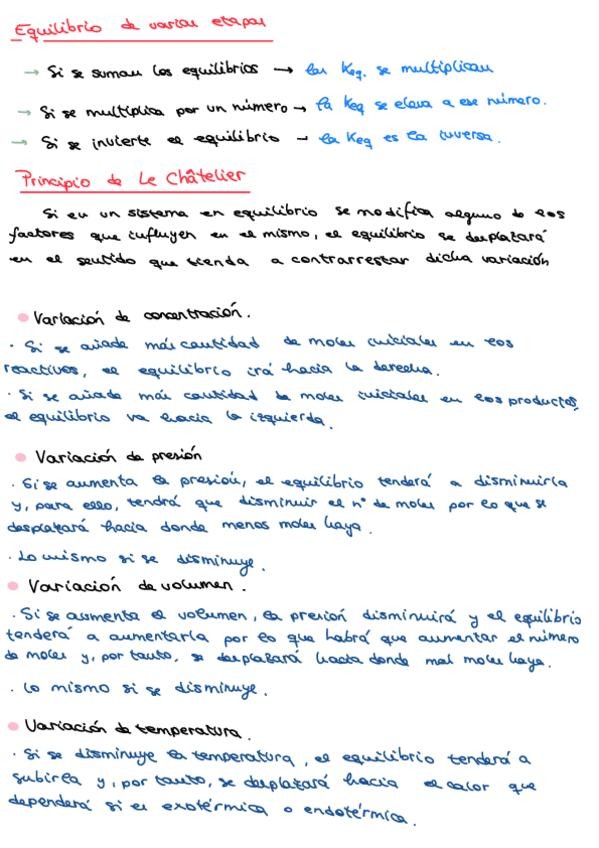 Equilibrio de varias etapas
→ Si se suman los equilibrios → las Keq. se multiplican
→ Si se multiplica por un número → la Keq se eleva a ese número.
→ Si se invierte el equilibrio → la Keq es la inversa.
Principio de Le Châtelier
Si en un sistema en equilibrio se modifica alguno de los
factores que influyen en el mismo, el equilibrio se desplazará
en el sentido que tienda a contrarrestar dicha variación
• Variación de concentración.
· Si se añade más cantidad de moles iniciales en los
reactivos, el equilibrio irá hacia la derecha.
· Si se añade más cantidad de moles iniciales en los productos,
el equilibrio va hacia la izquierda.
• Variación de presión
· Si se aumenta la presión, el equilibrio tenderá a disminuirla
y, para ello, tendrá que disminuir el nº de moles por lo que se
desplazará hacia donde menos moles haya.
· Lo mismo si se disminuye.
• Variación de volumen.
· Si se aumenta el volumen, la presión disminuirá y el equilibrio
tenderá a aumentarla por lo que habrá que aumentar el número
de moles y, por tanto, se desplazará hacia donde más moles haya.
· Lo mismo si se disminuye.
• Variación de temperatura.
· Si se disminuye la temperatura, el equilibrio tenderá a
subirla y, por tanto, se desplazará hacia el calor que
dependerá si es exotérmica o endotérmica.